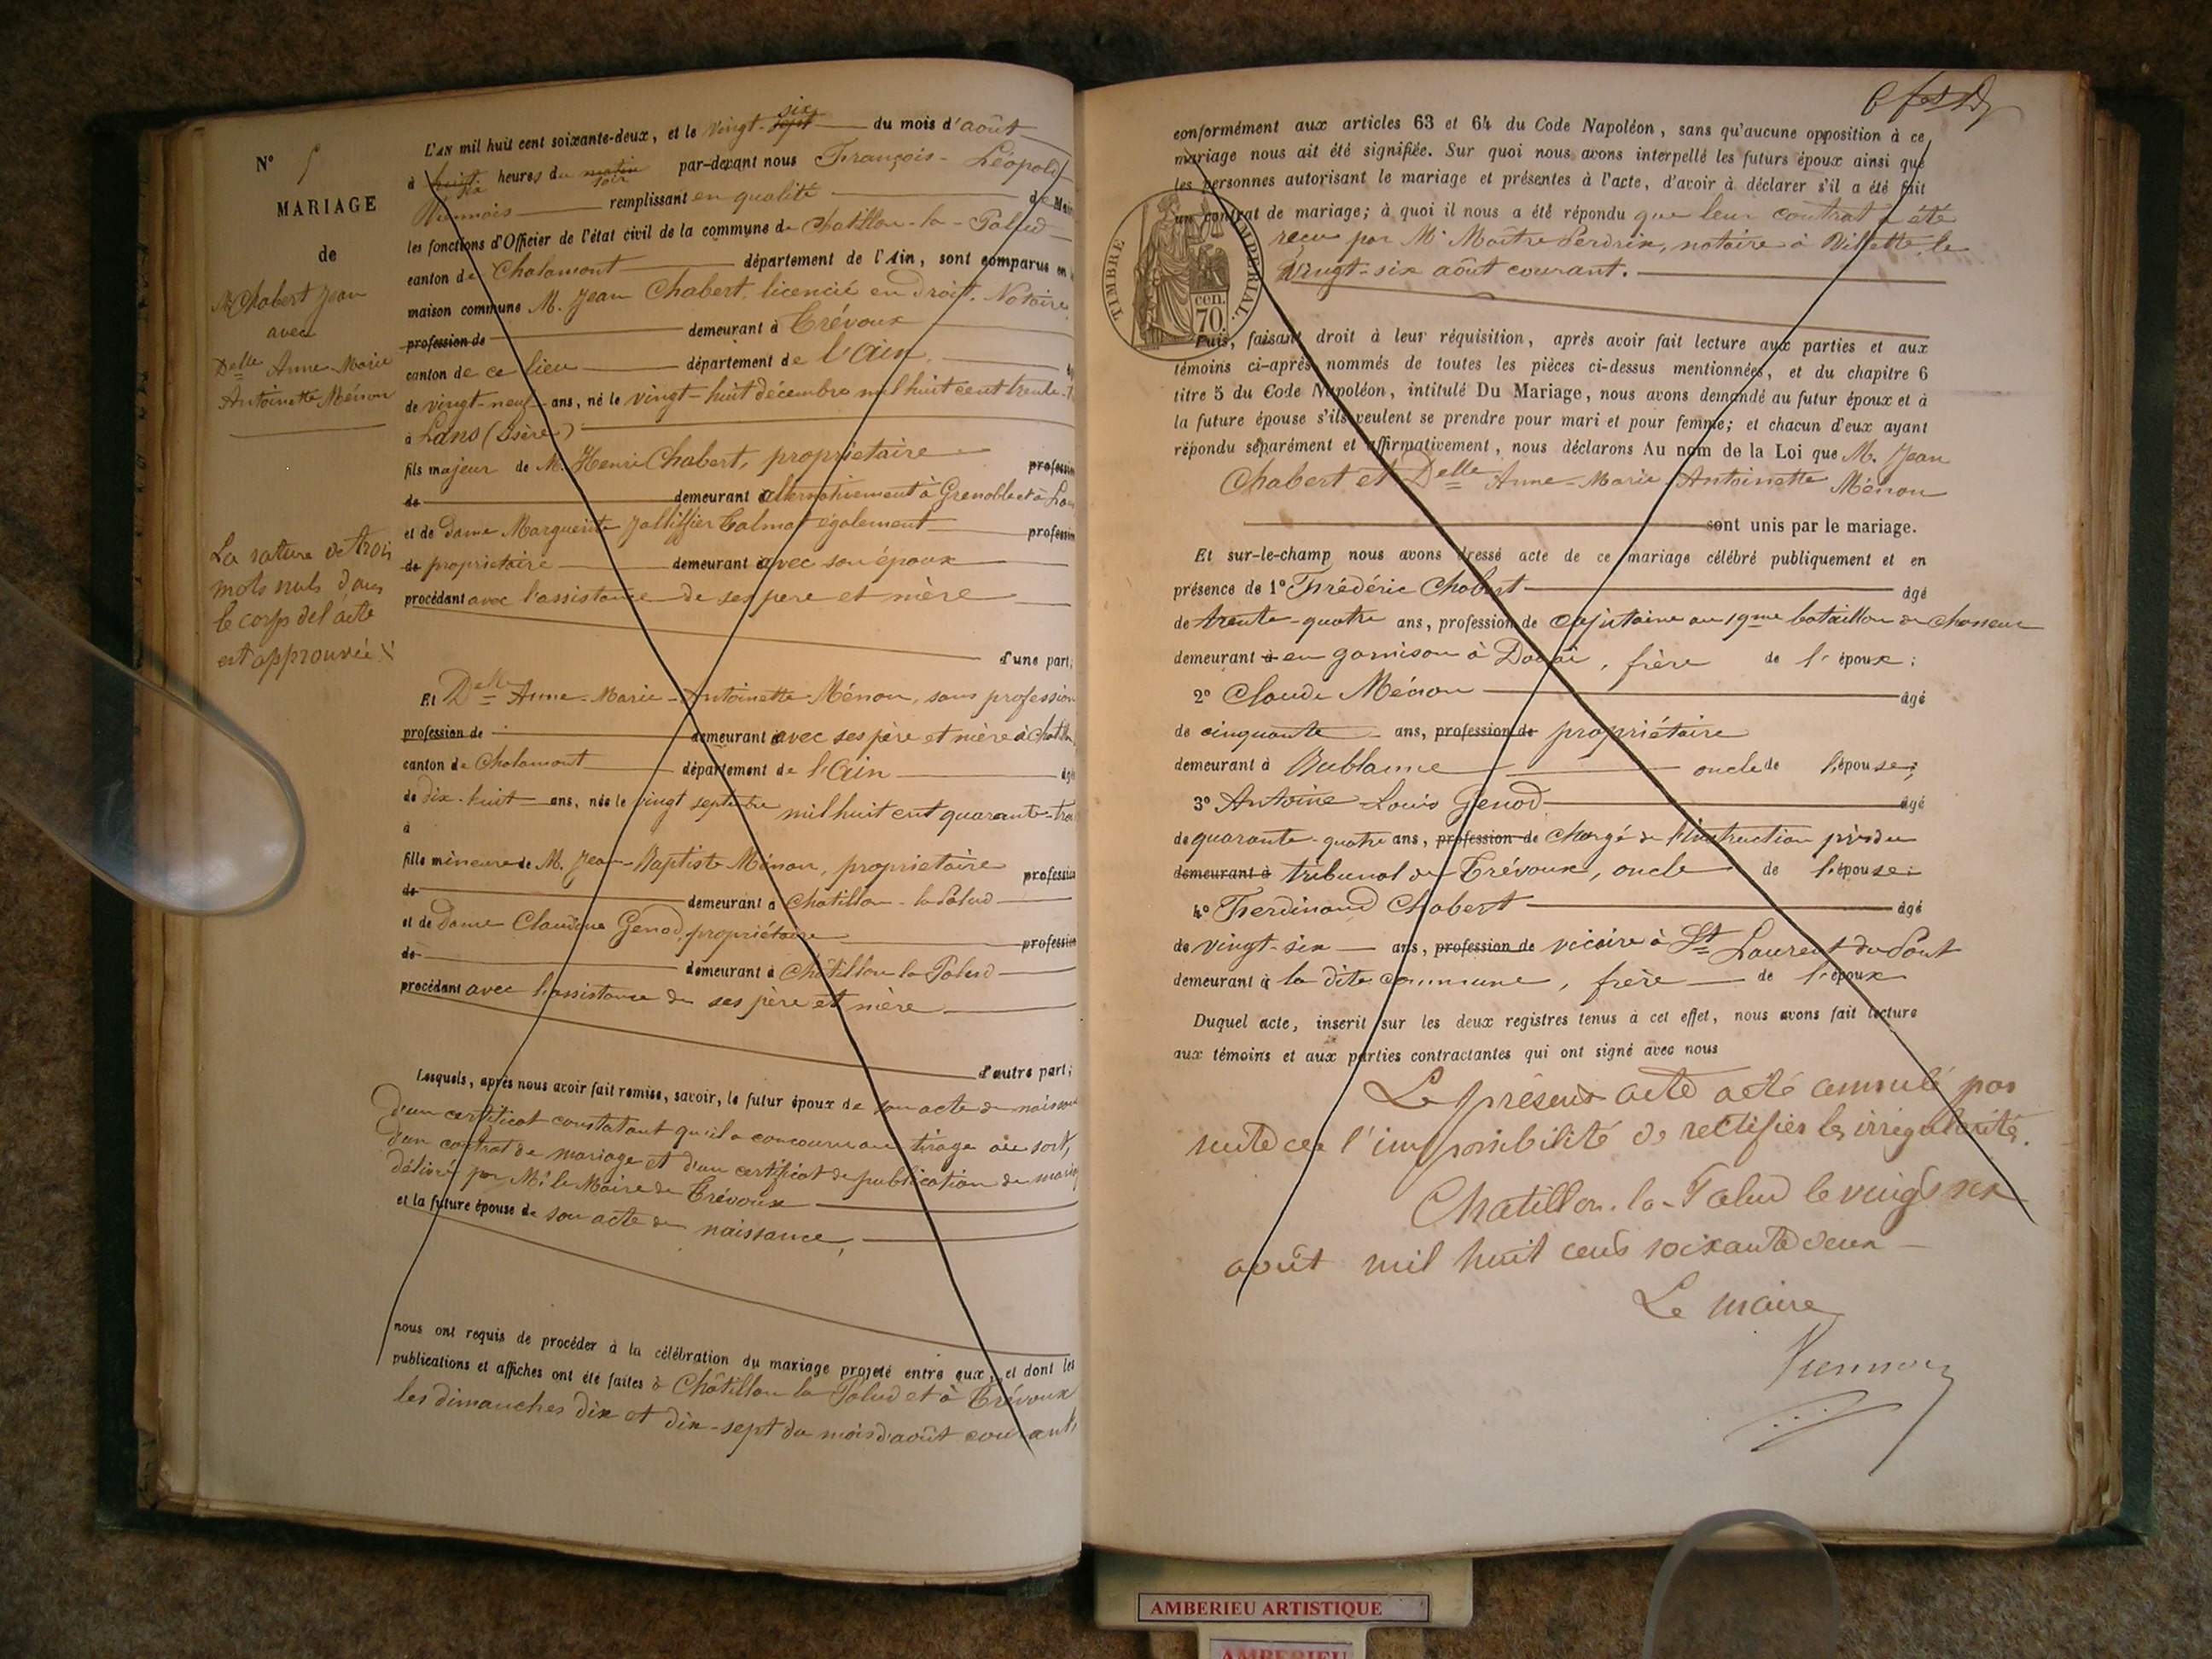 N° 5
MARIAGE
de
M. Chabert Jean
avec
Delle Anne-Marie
Antoinette Ménon
La rature de trois
mots nuls dans
le corps de l'acte
est approuvée
L'AN mil huit cent soixante-deux, et le vingt-six sept du mois d'août
à huit six heures du matin soir par-devant nous François-Léopold
Viennois remplissant en qualité de Maire
les fonctions d'Officier de l'état civil de la commune de Chatillon-la-Palud
canton de Chalamont département de l'Ain, sont comparus en
maison commune M. Jean Chabert, licencié en droit, Notaire
profession de demeurant à Trévoux
canton de ce lieu département de l'Ain
de vingt-neuf ans, né le vingt-huit décembre mil huit cent trente-
à Lans (Isère)
fils majeur de M. Henri Chabert, propriétaire profession
de demeurant alternativement à Grenoble et à Lans
et de Dame Marguerite Jalliffier Talmat également profession
de propriétaire demeurant avec son époux
procédant avec l'assistance de ses père et mère
d'une part;
Et Delle Anne-Marie-Antoinette Ménon, sans profession
profession de demeurant avec ses père et mère à Chatillon
canton de Chalamont département de l'Ain âgée
de dix-huit ans, née le vingt septembre mil huit cent quarante-trois
à
fille mineure de M. Jean-Baptiste Ménon, propriétaire profession
de demeurant à Chatillon-la-Palud
et de Dame Claudine Genod, propriétaire profession
de demeurant à Châtillon la Palud
procédant avec l'assistance de ses père et mère
d'autre part;
Lesquels, après nous avoir fait remise, savoir, le futur époux de son acte de naissance
d'un certificat constatant qu'il a concouru au tirage au sort,
d'un contrat de mariage et d'un certificat de publication de mariage
délivré par Mr le Maire de Trévoux
et la future épouse de son acte de naissance,
nous ont requis de procéder à la célébration du mariage projeté entre eux, et dont les
publications et affiches ont été faites à Châtillon la Palud et à Trévoux
les dimanches dix et dix-sept du mois d'août courant,
conformément aux articles 63 et 64 du Code Napoléon, sans qu'aucune opposition à ce
mariage nous ait été signifiée. Sur quoi nous avons interpellé les futurs époux ainsi que
les personnes autorisant le mariage et présentes à l'acte, d'avoir à déclarer s'il a été fait
un contrat de mariage; à quoi il nous a été répondu que leur contrat a été
reçu par Mr Maître Perdrix, notaire à Villette, le
vingt-six août courant.
TIMBRE IMPERIAL
70 cen.
Puis, faisant droit à leur réquisition, après avoir fait lecture aux parties et aux
témoins ci-après nommés de toutes les pièces ci-dessus mentionnées, et du chapitre 6
titre 5 du Code Napoléon, intitulé Du Mariage, nous avons demandé au futur époux et à
la future épouse s'ils veulent se prendre pour mari et pour femme; et chacun d'eux ayant
répondu séparément et affirmativement, nous déclarons Au nom de la Loi que M. Jean
Chabert et Delle Anne-Marie Antoinette Ménon
sont unis par le mariage.
Et sur-le-champ nous avons dressé acte de ce mariage célébré publiquement et en
présence de 1° Frédéric Chabert âgé
de trente-quatre ans, profession de capitaine au 19me bataillon de chasseur
demeurant à en garnison à Douai, frère de l'époux;
2° Claude Ménon âgé
de cinquante ans, profession de propriétaire
demeurant à Bublanne oncle de l'épouse;
3° Antoine Louis Genod âgé
de quarante-quatre ans, profession de chargé de l'instruction près du
demeurant à tribunal de Trévoux, oncle de l'épouse;
4° Ferdinand Chabert âgé
de vingt-six ans, profession de vicaire à St Laurent du Pont
demeurant à la dite commune, frère de l'époux
Duquel acte, inscrit sur les deux registres tenus à cet effet, nous avons fait lecture
aux témoins et aux parties contractantes qui ont signé avec nous
Le présent acte a été annulé par
suite de l'impossibilité de rectifier les irrégularités.
Chatillon-la-Palud le vingt six
août mil huit cent soixante deux
Le maire
Viennois
AMBERIEU ARTISTIQUE
AMBERIEU